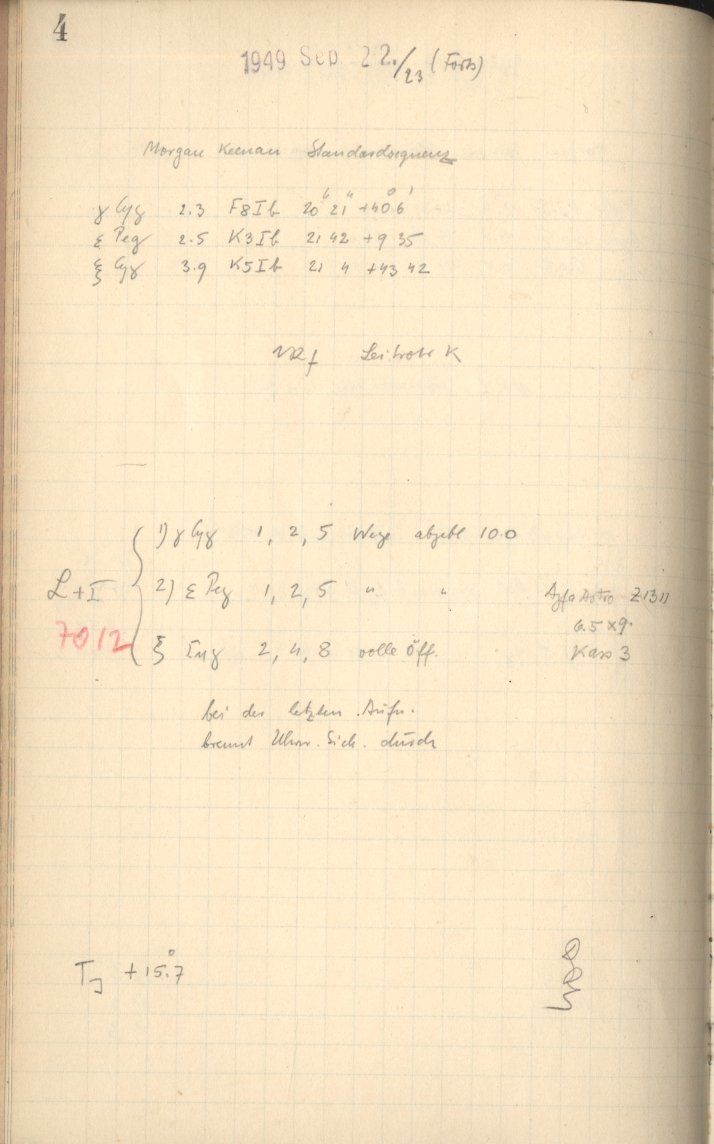 4
1949 Sep 22./23 (Forts)
Morgan Keenan Standardsequenz
γ Cyg 2.3 F8Ib 20ʰ 21ᵐ +40°6'
ε Peg 2.5 K3Ib 21 42 +9 35
ξ Cyg 3.9 K5Ib 21 4 +43 42
Leitrohr K
1) γ Cyg 1, 2, 5 Wege abgebl 10.0
L+I 2) ε Peg 1, 2, 5 " " Agfa Astro Z1311
6.5 x 9
7012 ξ Cyg 2, 4, 8 volle Öff. Kass 3
bei der letzten Aufn.
brennt Uhr. Sich. durch
T_J +15.°7